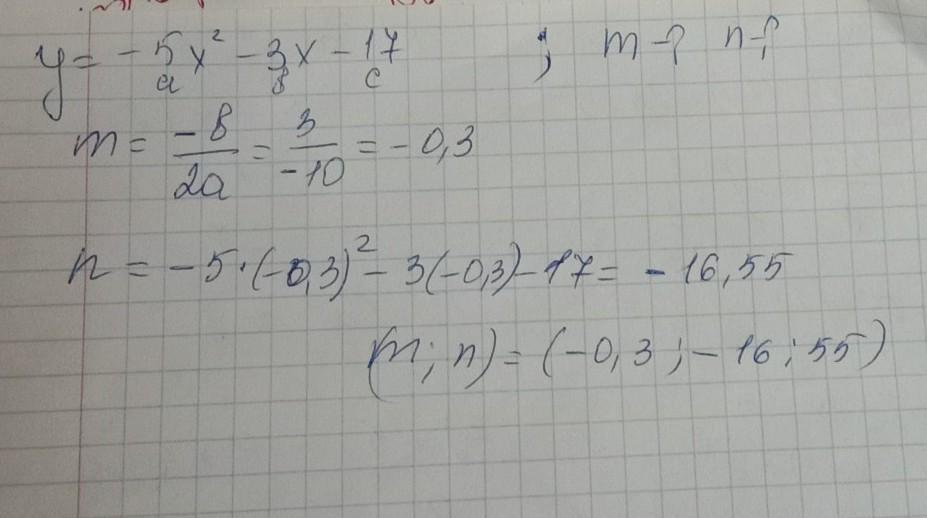 y = -5x² - 3x - 17 ; m - ? n - ?
a в c
m = -в/2a = 3/-10 = -0,3
n = -5·(-0,3)² - 3(-0,3) - 17 = -16,55
(m; n) = (-0,3; -16;55)